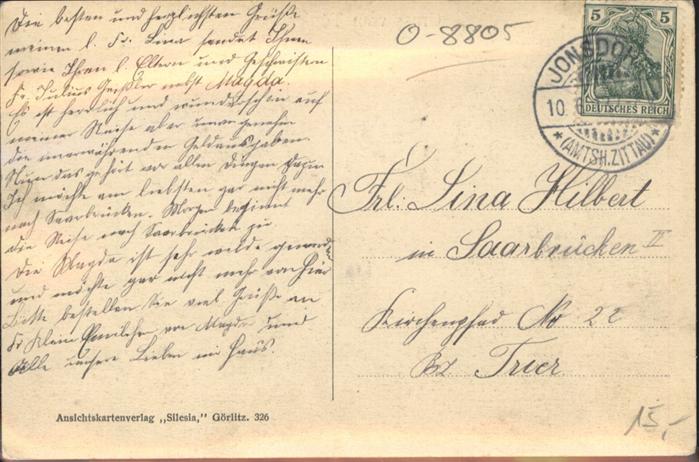 Die besten und herzlichsten Grüße
meiner l. Fr. Lina sendet Ihnen
sowie Ihren l. Eltern und Geschwistern
Fr. Julius nebst Magda.
Es ist herrlich und wunderschön auf
meiner Reise aber
die Geldausgaben
das gehört vor allen Dingen dazu
Ich möchte am liebsten gar nicht mehr
nach Saarbrücken. Morgen beginnt
die Reise nach Saarbrücken zu
Die Magda ist sehr wild geworden
und möchte gar nicht mehr von hier
Bitte bestellen Sie viel Grüße an
Fr. Klein von Magda und
Alle unsere Lieben im Haus.
O-8805
5 5
DEUTSCHES REICH
JONSDORF
10.
*(AMTSH. ZITTAU)*
Frl. Lina Hilbert
in Saarbrücken II
Kirchenpfad No 22
Bz. Trier
Ansichtskartenverlag „Silesia,“ Görlitz. 326
15,-